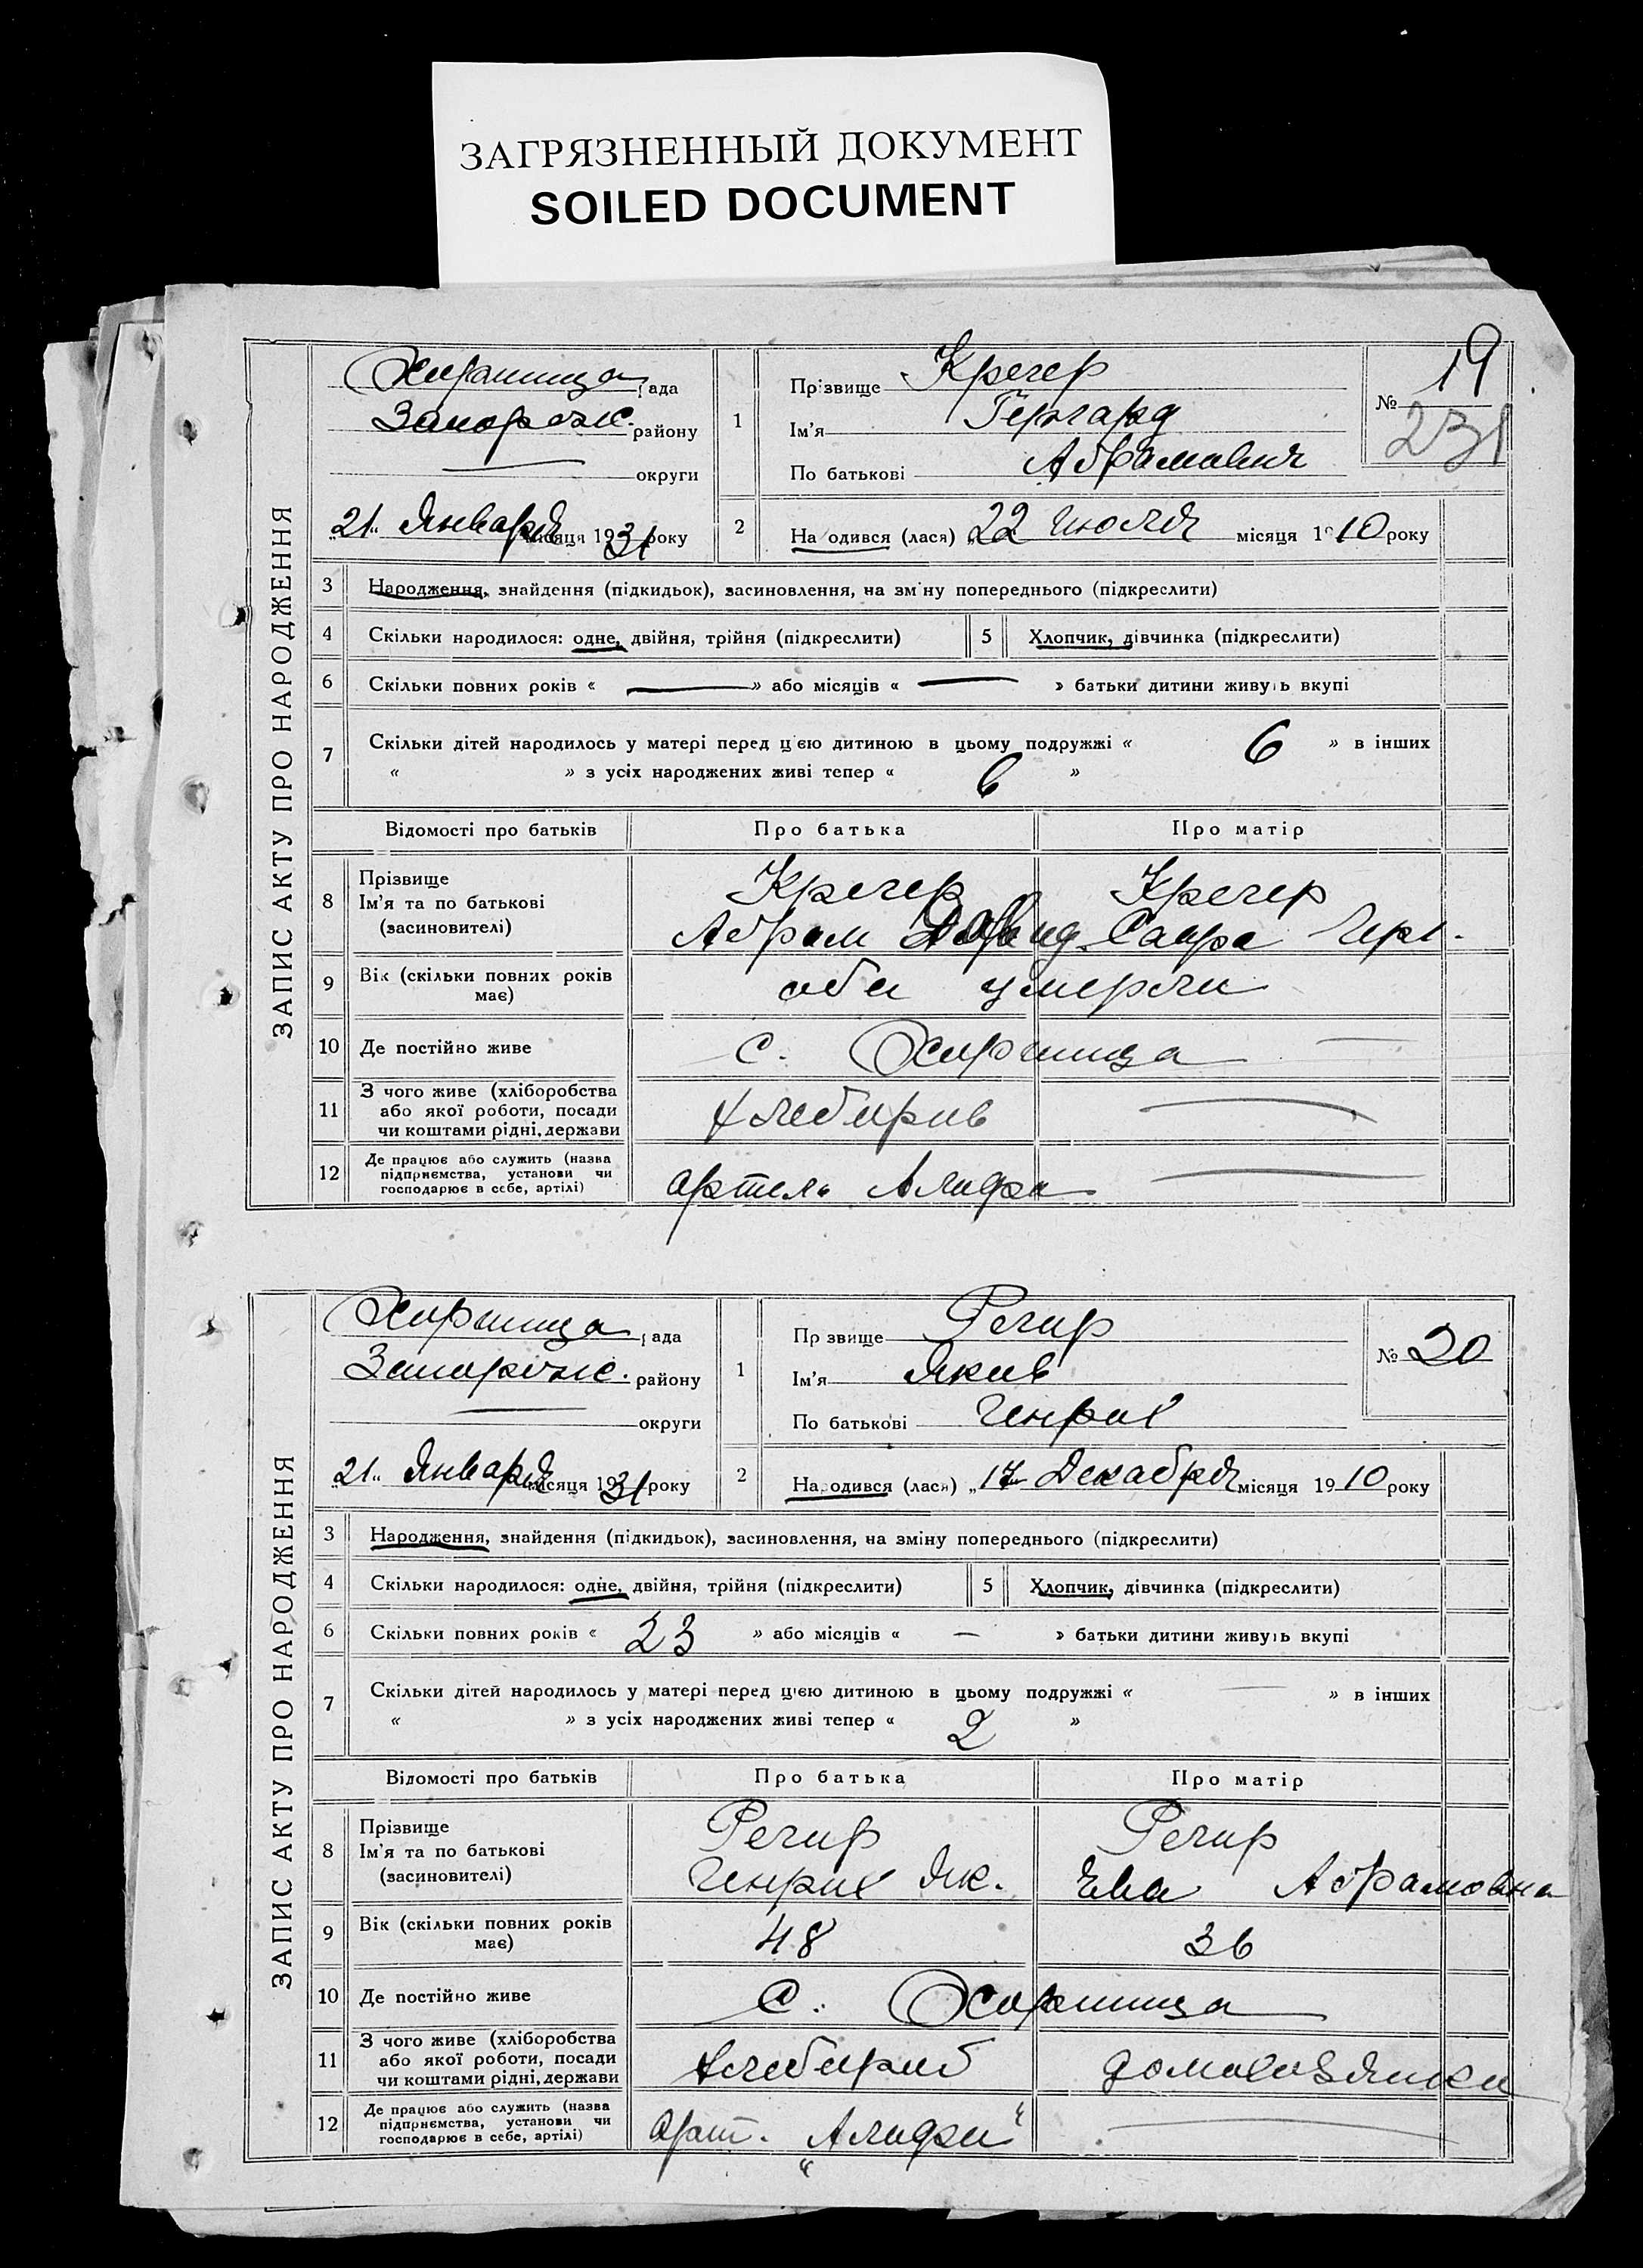 ЗАГРЯЗНЕННЫЙ ДОКУМЕНТ
SOILED DOCUMENT
ЗАПИС АКТУ ПРО НАРОДЖЕННЯ
рада
Запорож. району
округи
„21“ Января місяця 1931 року
1
Прізвище Крегер
Ім'я Гергард
По батькові Абрамович
№ 19
231
2
Народився (лася) „22 Июля місяця 1910 року
3 Народження, знайдення (підкидьок), засиновлення, на зміну попереднього (підкреслити)
4 Скільки народилося: одне, двійня, трійня (підкреслити)
5 Хлопчик, дівчинка (підкреслити)
6 Скільки повних років « — » або місяців « — » батьки дитини живуть вкупі
7 Скільки дітей народилось у матері перед цією дитиною в цьому подружжі « 6 » в інших
« » з усіх народжених живі тепер « 6 »
Відомості про батьків Про батька Про матір
8 Прізвище
Ім'я та по батькові
(засновителі)
Крегер
Абрам Давид.
Крегер
Саара
9 Вік (скільки повних років
має)
оби умерли
10 Де постійно живе
с.
11 З чого живе (хліборобства
або якої роботи, посади
чи коштами рідні, держави
12 Де працює або служить (назва
підприємства, установи чи
господарює в себе, артілі)
артель
ЗАПИС АКТУ ПРО НАРОДЖЕННЯ
рада
Запорож. району
округи
„21“ Января місяця 1931 року
1
Прізвище Регир
Ім'я Яков
По батькові Генрих
№ 20
2
Народився (лася) „17 Декабря місяця 1910 року
3 Народження, знайдення (підкидьок), засиновлення, на зміну попереднього (підкреслити)
4 Скільки народилося: одне, двійня, трійня (підкреслити)
5 Хлопчик, дівчинка (підкреслити)
6 Скільки повних років « 23 » або місяців « — » батьки дитини живуть вкупі
7 Скільки дітей народилось у матері перед цією дитиною в цьому подружжі « — » в інших
« » з усіх народжених живі тепер « 2 »
Відомості про батьків Про батька Про матір
8 Прізвище
Ім'я та по батькові
(засиновителі)
Регир
Генрих Як.
Регир
Ева Абрамовна
9 Вік (скільки повних років
має)
48
36
10 Де постійно живе
с.
11 З чого живе (хліборобства
або якої роботи, посади
чи коштами рідні, держави
12 Де працює або служить (назва
підприємства, установи чи
господарює в себе, артілі)
Арт.